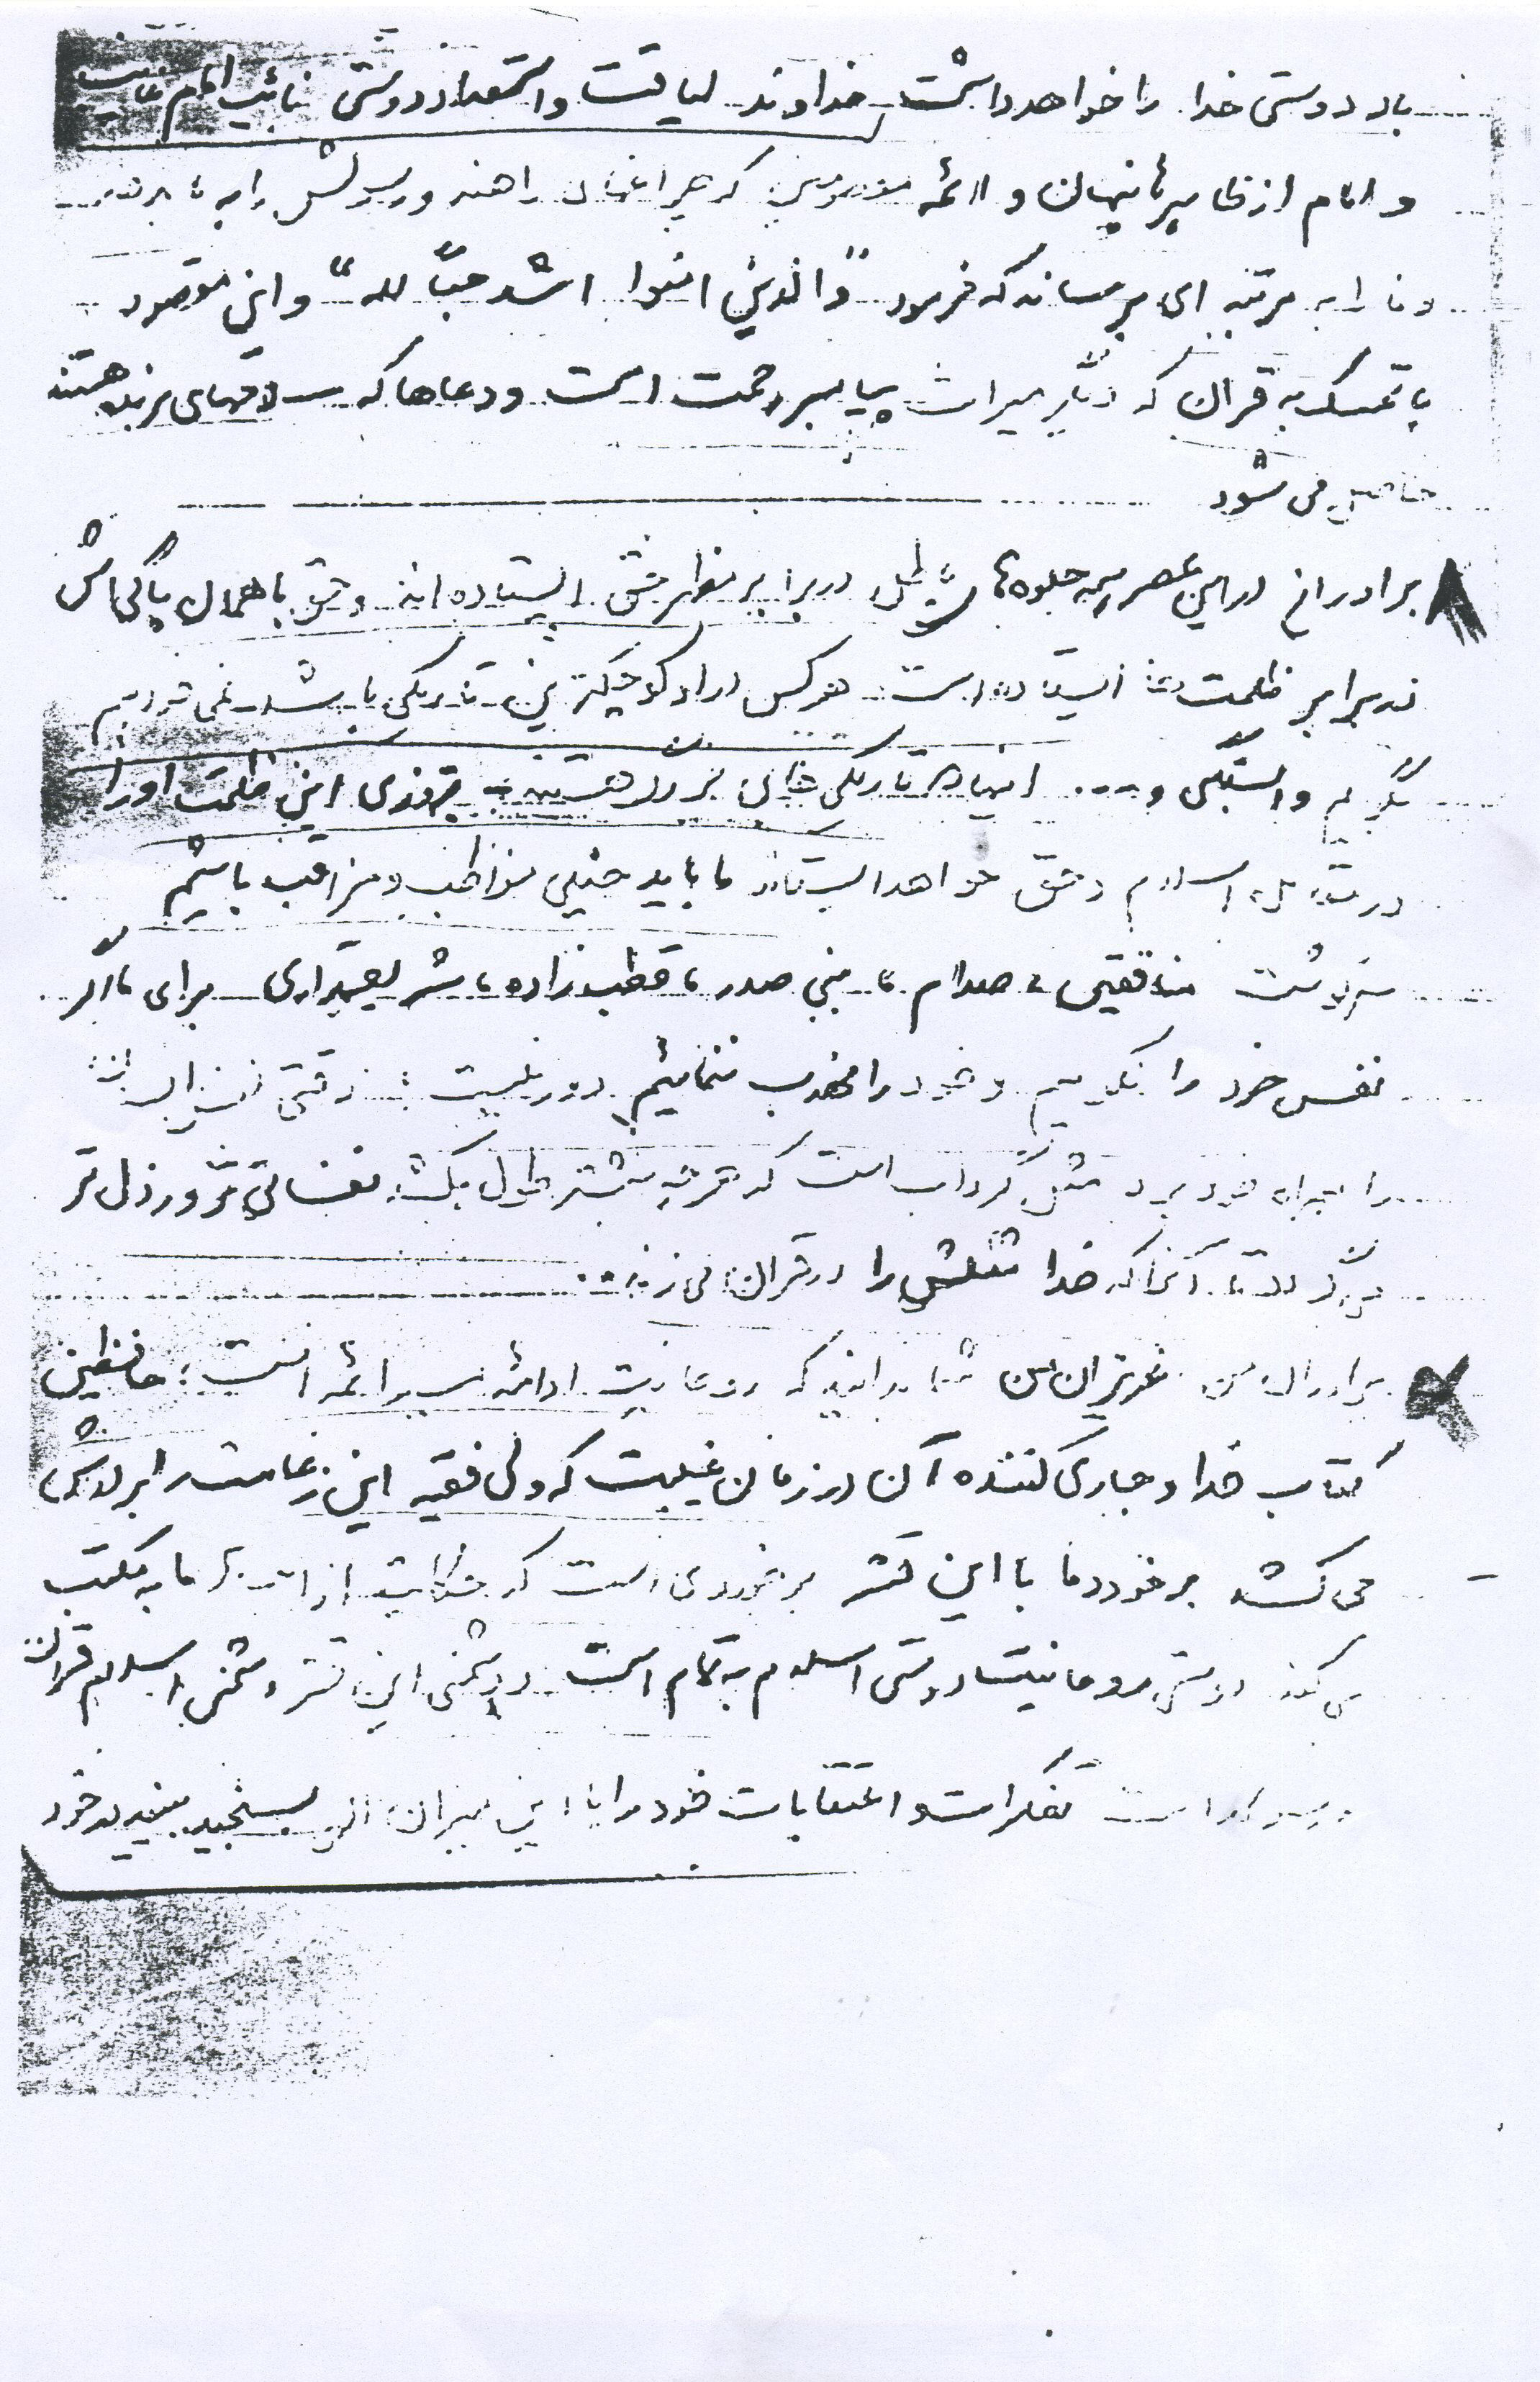 باد دوستی خدا را خواهد داشت خداوند لیاقت واستعداد دوستی نائب امام غائب
و امام از نظرها پنهان و ائمه که چراغهای راهند و رسولش را به ما بدهد
وما را به مرتبه ای برساند که فرمود "والذین امنوا اشد حباً لله" واین مقصود
با تمسک به قران که یادگار میراث پیامبر رحمت است و دعاها که سلاحهای برنده هستند
حاصل می شود
برادرانم در این عصر همه جلوه های باطل در برابر مظهر حق ایستاده اند و حق با همان پاکی اش
در برابر ظلمت ایستاده است هرکس در او کوچکترین تاریکی باشد نمی خواهیم
بگویم وابستگی و .... اینها که تاریکی های بزرگ هستند فردزدی این ظلمت اورا
در مقابل اسلام و حق خواهد ایستاند ما باید خیلی مواظب و مراقب باشیم
سرنوشت منافقین ، صدام ، بنی صدر ، قطب زاده ، شریعتمداری برای ما اگر
نفس خود را نکوبیم و خود را مهذب ننمائیم دور نیست ؛ وقتی نفس انسان
را همراه خود برد مثل گرداب است که هر چه بیشتر طول بکشد نفسانی تر و رذل تر
می گردد تا آنجا که خدا مثلش را در قران می زند ...
برادران من عزیزان من شما بدانید که روحانیت ادامه مسیر ائمه است ؛ حافظین
کتاب خدا و جاری کننده آن در زمان غیبت که ولی فقیه این زعامت را بر دوش
می کشد برخورد ما با این قشر برخوردی است که حکایت از اعتقاد ما به مکتب
می کند دوستی روحانیت دوستی اسلام به تمام است و دشمنی این قشر دشمنی اسلام قران
و رسول خداست تفکرات و اعتقادات خود را با این میزان الهی بسنجید ببینید خود